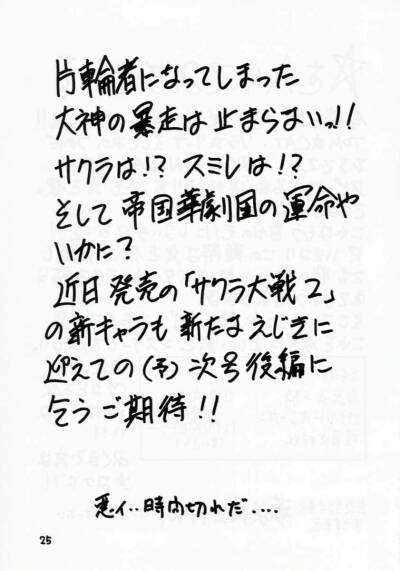 片輪者になってしまった
大神の暴走は止まらまいっ!!
サクラは!? スミレは!?
そして帝国華劇団の運命や
いかに?
近日発売の「サクラ大戦2」
の新キャラも新たなえじきに
迎えての(予)次号後編に
乞うご期待!!
悪ィ‥時間切れだ.....
25